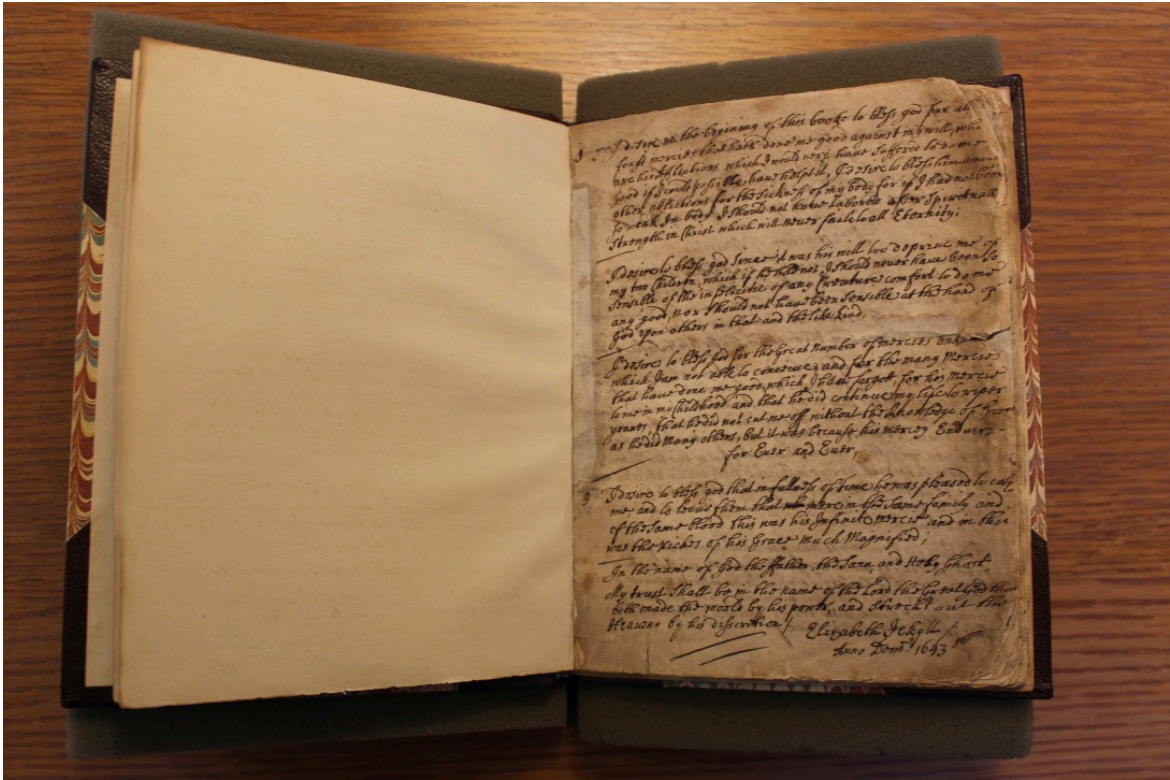 I desire in the beginning of this booke to bless god for all
forst mercies that hath done me good against my will, wch
are hard afflections which I would never have suffered to do me
good if I could possible have helpt it, I desire to bless him among
other afflictions for the sickness of my body for if I had not been
so weak In body I should not have labored after Spiretuall
strength in Christ which will never faile to all Eternity;
I desire to bless god Since it was his will to deprive me of
my two Children, which if he had not I should never have been so
sensible of the insufficitie of any Creature comfort to do me
any good, nor should not have been sensible at the hand of
God upon others in that and the like kind,
I desire to bless God for the Great Number of mercies
which I am not able to conceive, and for the many Mercies
that have done me good, which I have forgot, for his Mercie
to me in my Childhood and that he did continue my life to riper
yeares, that he did not cut me off without the knowledge of
as he did Many others, but it was because his mercey Endures
for Euer and Euer,
I desire to bless god that in fullness of time he was pleased to call
me, and to leave them that were in the same family and
of the same Blood this was his Infinite mercie and in this
was the Riches of his Grace much Magnified;
In the name of God the father, the Sonn, and Holy Ghost
My trust shall be in the name of the Lord the Great God that
hath made the world by his power, and strecht out the
Heavens by his disscretion!
Elizabeth Jekyll
Anno Dom 1643